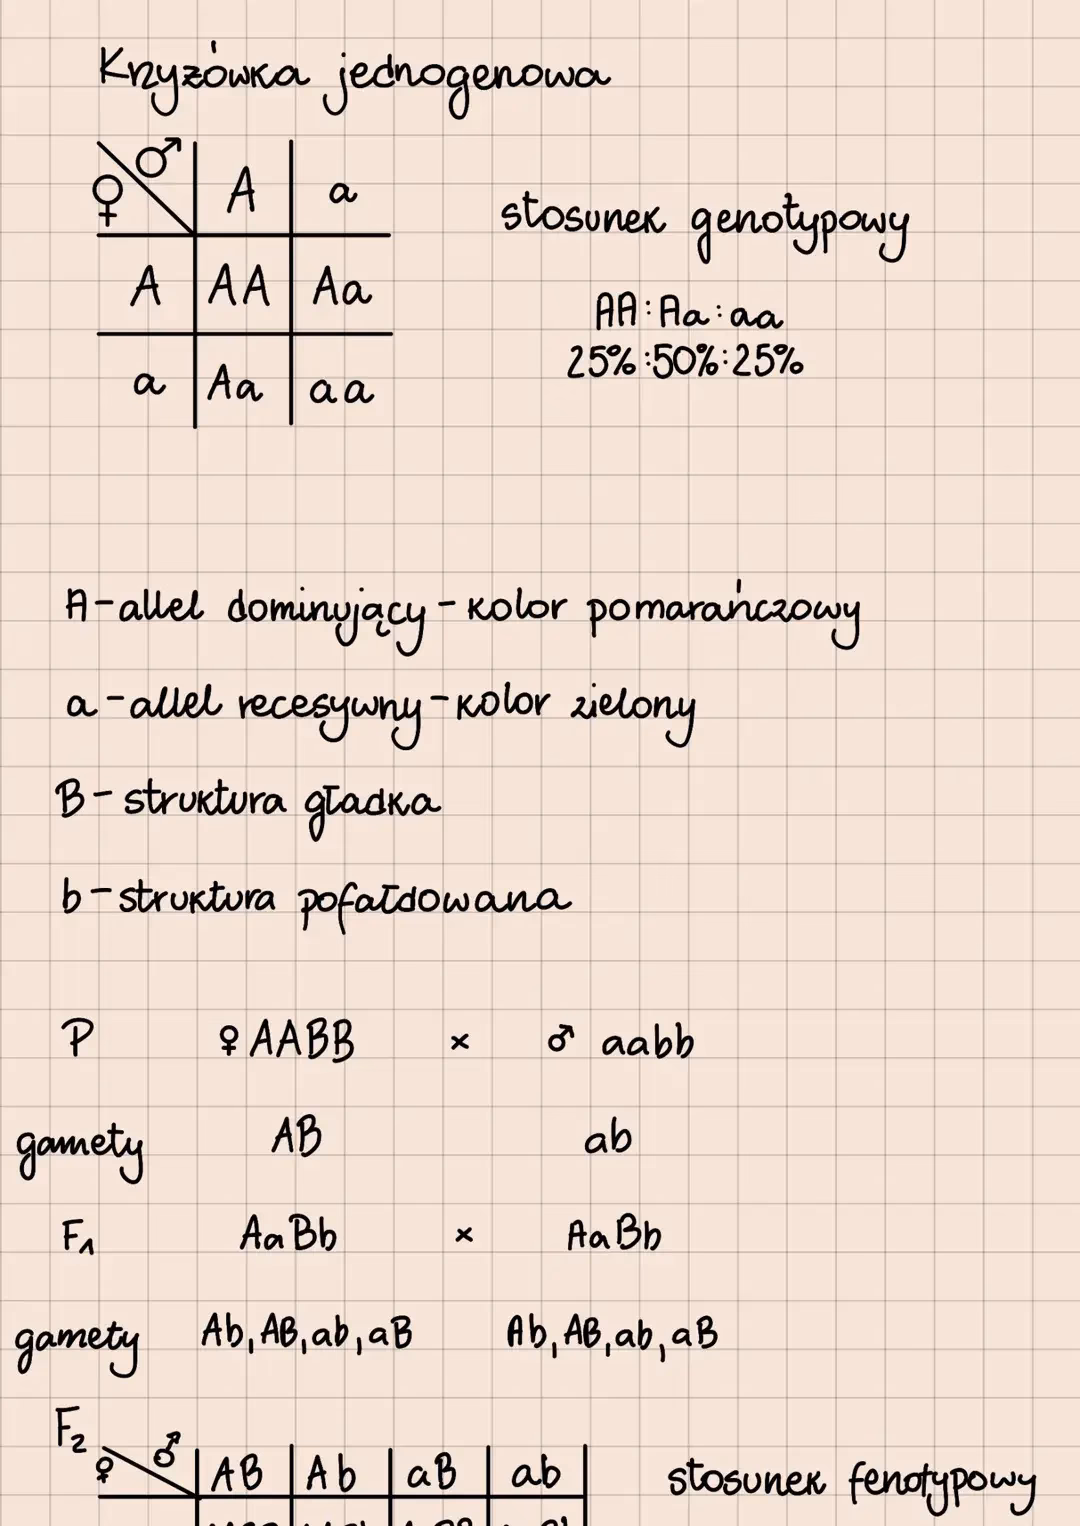 Krzyżówka jednogenowa
♀ ♂ A a
A AA Aa
a Aa aa
stosunek genotypowy
AA : Aa : aa
25% : 50% : 25%
A - allel dominujący - kolor pomarańczowy
a - allel recesywny - kolor zielony
B - struktura gładka
b - struktura pofałdowana
P ♀ AABB × ♂ aabb
gamety AB ab
F1 AaBb × AaBb
gamety Ab, AB, ab, aB Ab, AB, ab, aB
F2
♀ ♂ AB Ab aB ab
stosunek fenotypowy